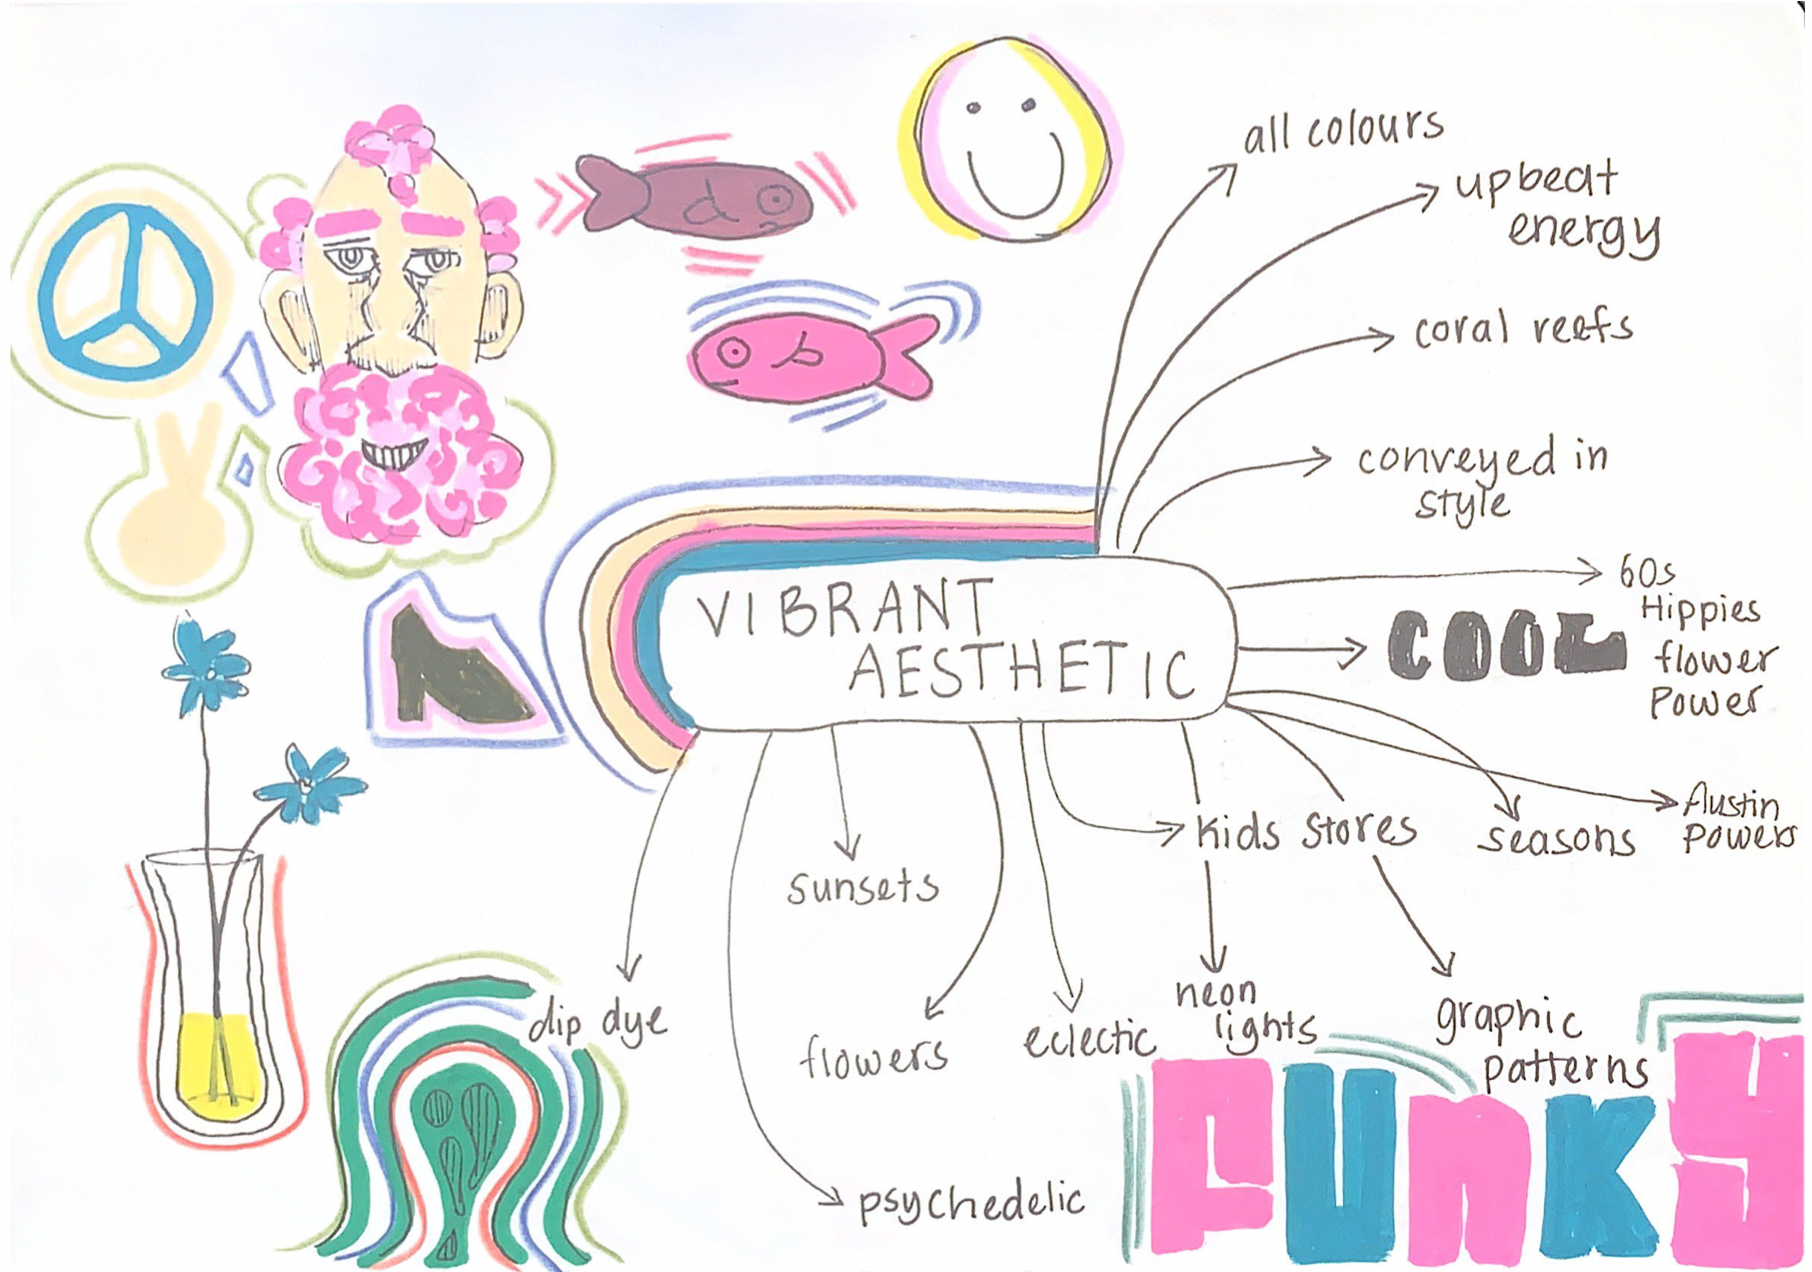 all colours
upbeat
energy
coral reefs
conveyed in
style
60s
Hippies
flower
Power
COOL
VIBRANT
AESTHETIC
Austin
Powers
seasons
kids stores
sunsets
dip dye
flowers
eclectic
neon
lights
graphic
patterns
psychedelic
FUNKY